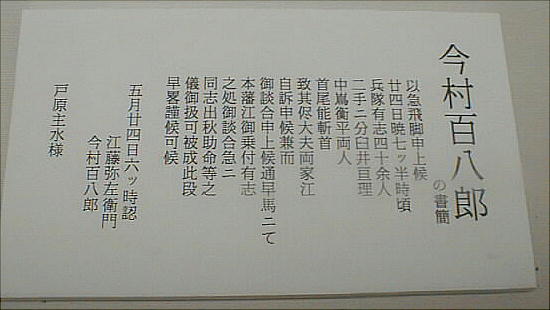 今村百八郎
の書簡
以急飛脚申上候
廿四日暁七ッ半時頃
兵隊有志四十余人
二手ニ分臼井亘理
中嶌衡平両人
首尾能斬首
致其侭大夫両家江
自訴申候兼而
御談合申上候通早馬ニて
本藩江御乗付有志
之処御談合急ニ
同志出秋助命等之
儀御扱可被成此段
早畧謹候可候
五月廿四日六ッ時認
江藤弥左衛門
今村百八郎
戸原主水様